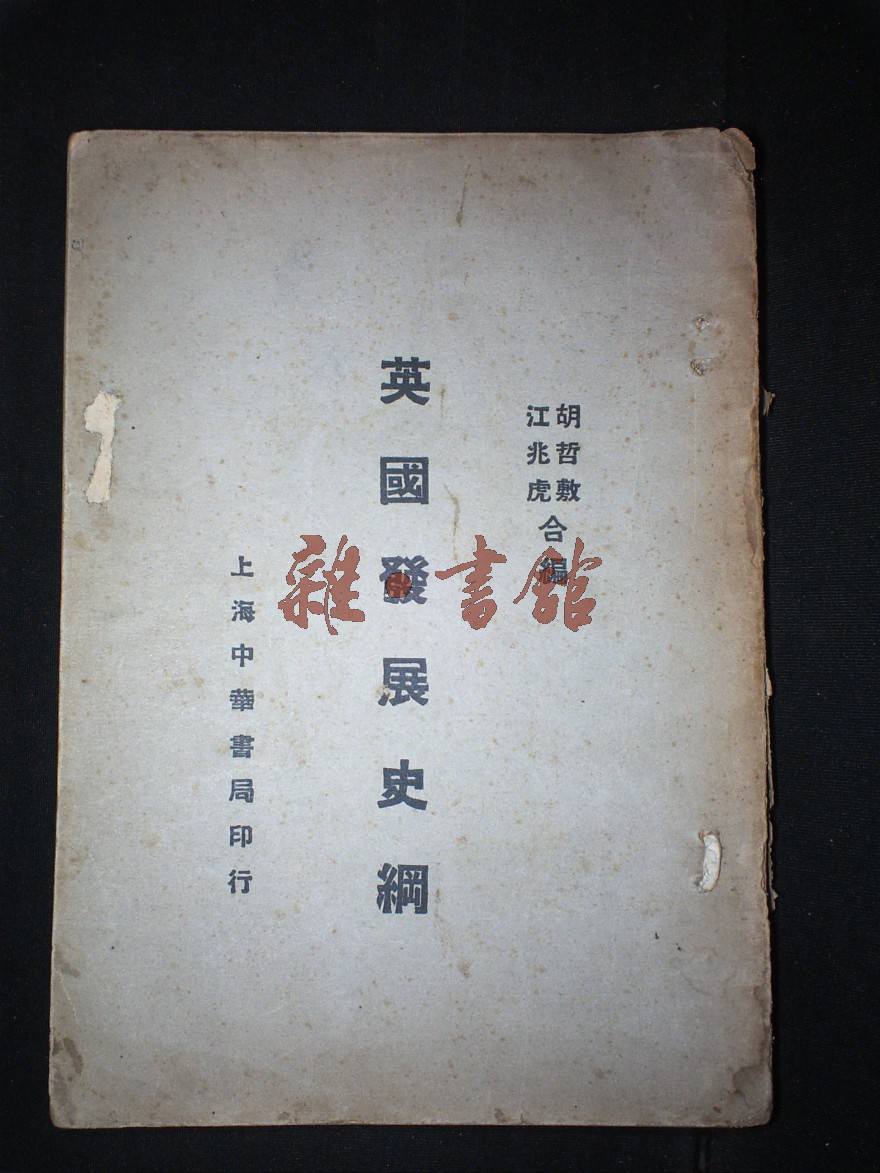 胡哲敷
江兆虎
合編
英國發展史綱
上海中華書局印行
雜·書館